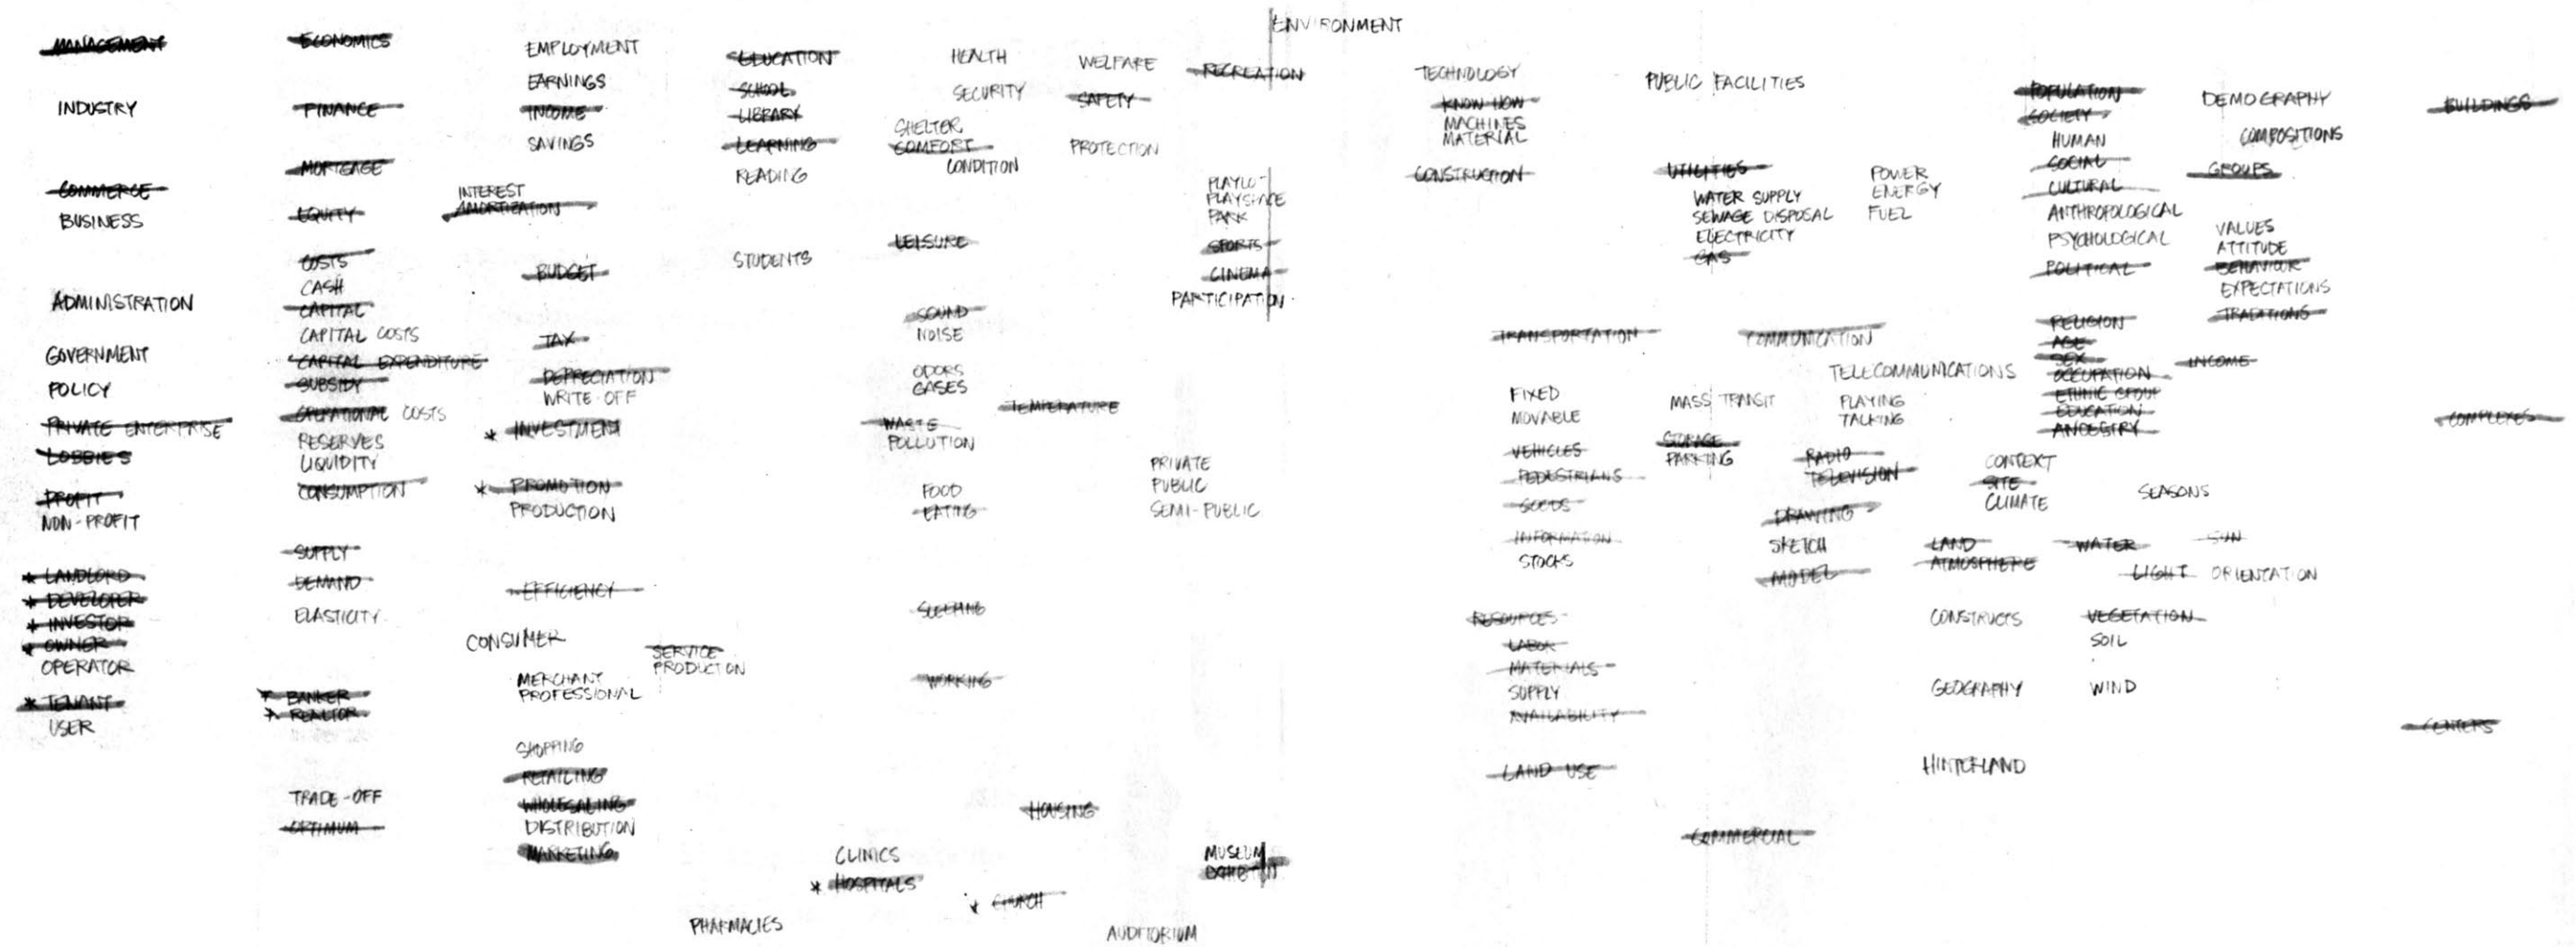 ENVIRONMENT
MANAGEMENT
INDUSTRY
COMMERCE
BUSINESS
ADMINISTRATION
GOVERNMENT
POLICY
PRIVATE ENTERPRISE
LOBBIES
PROFIT
NON-PROFIT
* LANDLORD
* DEVELOPER
* INVESTOR
* OWNER
OPERATOR
* TENANT
USER
ECONOMICS
FINANCE
MORTGAGE
EQUITY
COSTS
CASH
CAPITAL
CAPITAL COSTS
CAPITAL EXPENDITURE
SUBSIDY
OPERATIONAL COSTS
RESERVES
LIQUIDITY
CONSUMPTION
SUPPLY
DEMAND
ELASTICITY
* BANKER
* REALTOR
TRADE-OFF
OPTIMUM
EMPLOYMENT
EARNINGS
INCOME
SAVINGS
INTEREST
AMORTIZATION
BUDGET
TAX
DEPRECIATION
WRITE-OFF
* INVESTMENT
* PROMOTION
PRODUCTION
EFFICIENCY
CONSUMER
SERVICE
PRODUCTON
MERCHANT
PROFESSIONAL
SHOPPING
RETAILING
WHOLESALING
DISTRIBUTION
MARKETING
EDUCATION
SCHOOL
LIBRARY
LEARNING
READING
STUDENTS
HEALTH
SECURITY
SHELTER
COMFORT
CONDITION
LEISURE
SOUND
NOISE
ODORS
GASES
TEMPERATURE
WASTE
POLLUTION
FOOD
EATING
SLEEPING
WORKING
HOUSING
CLINICS
* HOSPITALS
CHURCH
PHARMACIES
WELFARE
SAFETY
PROTECTION
RECREATION
PLAYSPACE
PARK
SPORTS
CINEMA
PARTICIPATION
PRIVATE
PUBLIC
SEMI-PUBLIC
MUSEUM
EXHIBITION
AUDITORIUM
TECHNOLOGY
KNOW HOW
MACHINES
MATERIAL
CONSTRUCTION
TRANSPORTATION
FIXED
MOVABLE
VEHICLES
PEDESTRIANS
GOODS
INFORMATION
STOCKS
RESOURCES
LABOR
MATERIALS
SUPPLY
AVAILABILITY
LAND USE
PUBLIC FACILITIES
UTILITIES
WATER SUPPLY
SEWAGE DISPOSAL
ELECTRICITY
GAS
POWER
ENERGY
FUEL
COMMUNICATION
TELECOMMUNICATIONS
MASS TRANSIT
STORAGE
PARKING
PLAYING
TALKING
RADIO
TELEVISION
DRAWING
SKETCH
MODEL
COMMERCIAL
POPULATION
SOCIETY
HUMAN
SOCIAL
CULTURAL
ANTHROPOLOGICAL
PSYCHOLOGICAL
POLITICAL
RELIGION
AGE
SEX
OCCUPATION
ETHNIC GROUP
EDUCATION
ANCESTRY
DEMOGRAPHY
COMPOSITIONS
GROUPS
VALUES
ATTITUDE
BEHAVIOUR
EXPECTATIONS
TRADITIONS
INCOME
CONTEXT
SITE
CLIMATE
SEASONS
LAND
ATMOSPHERE
WATER
SUN
LIGHT
ORIENTATION
CONSTRUCTS
VEGETATION
SOIL
GEOGRAPHY
WIND
HINTERLAND
BUILDINGS
COMPLEXES
CENTERS